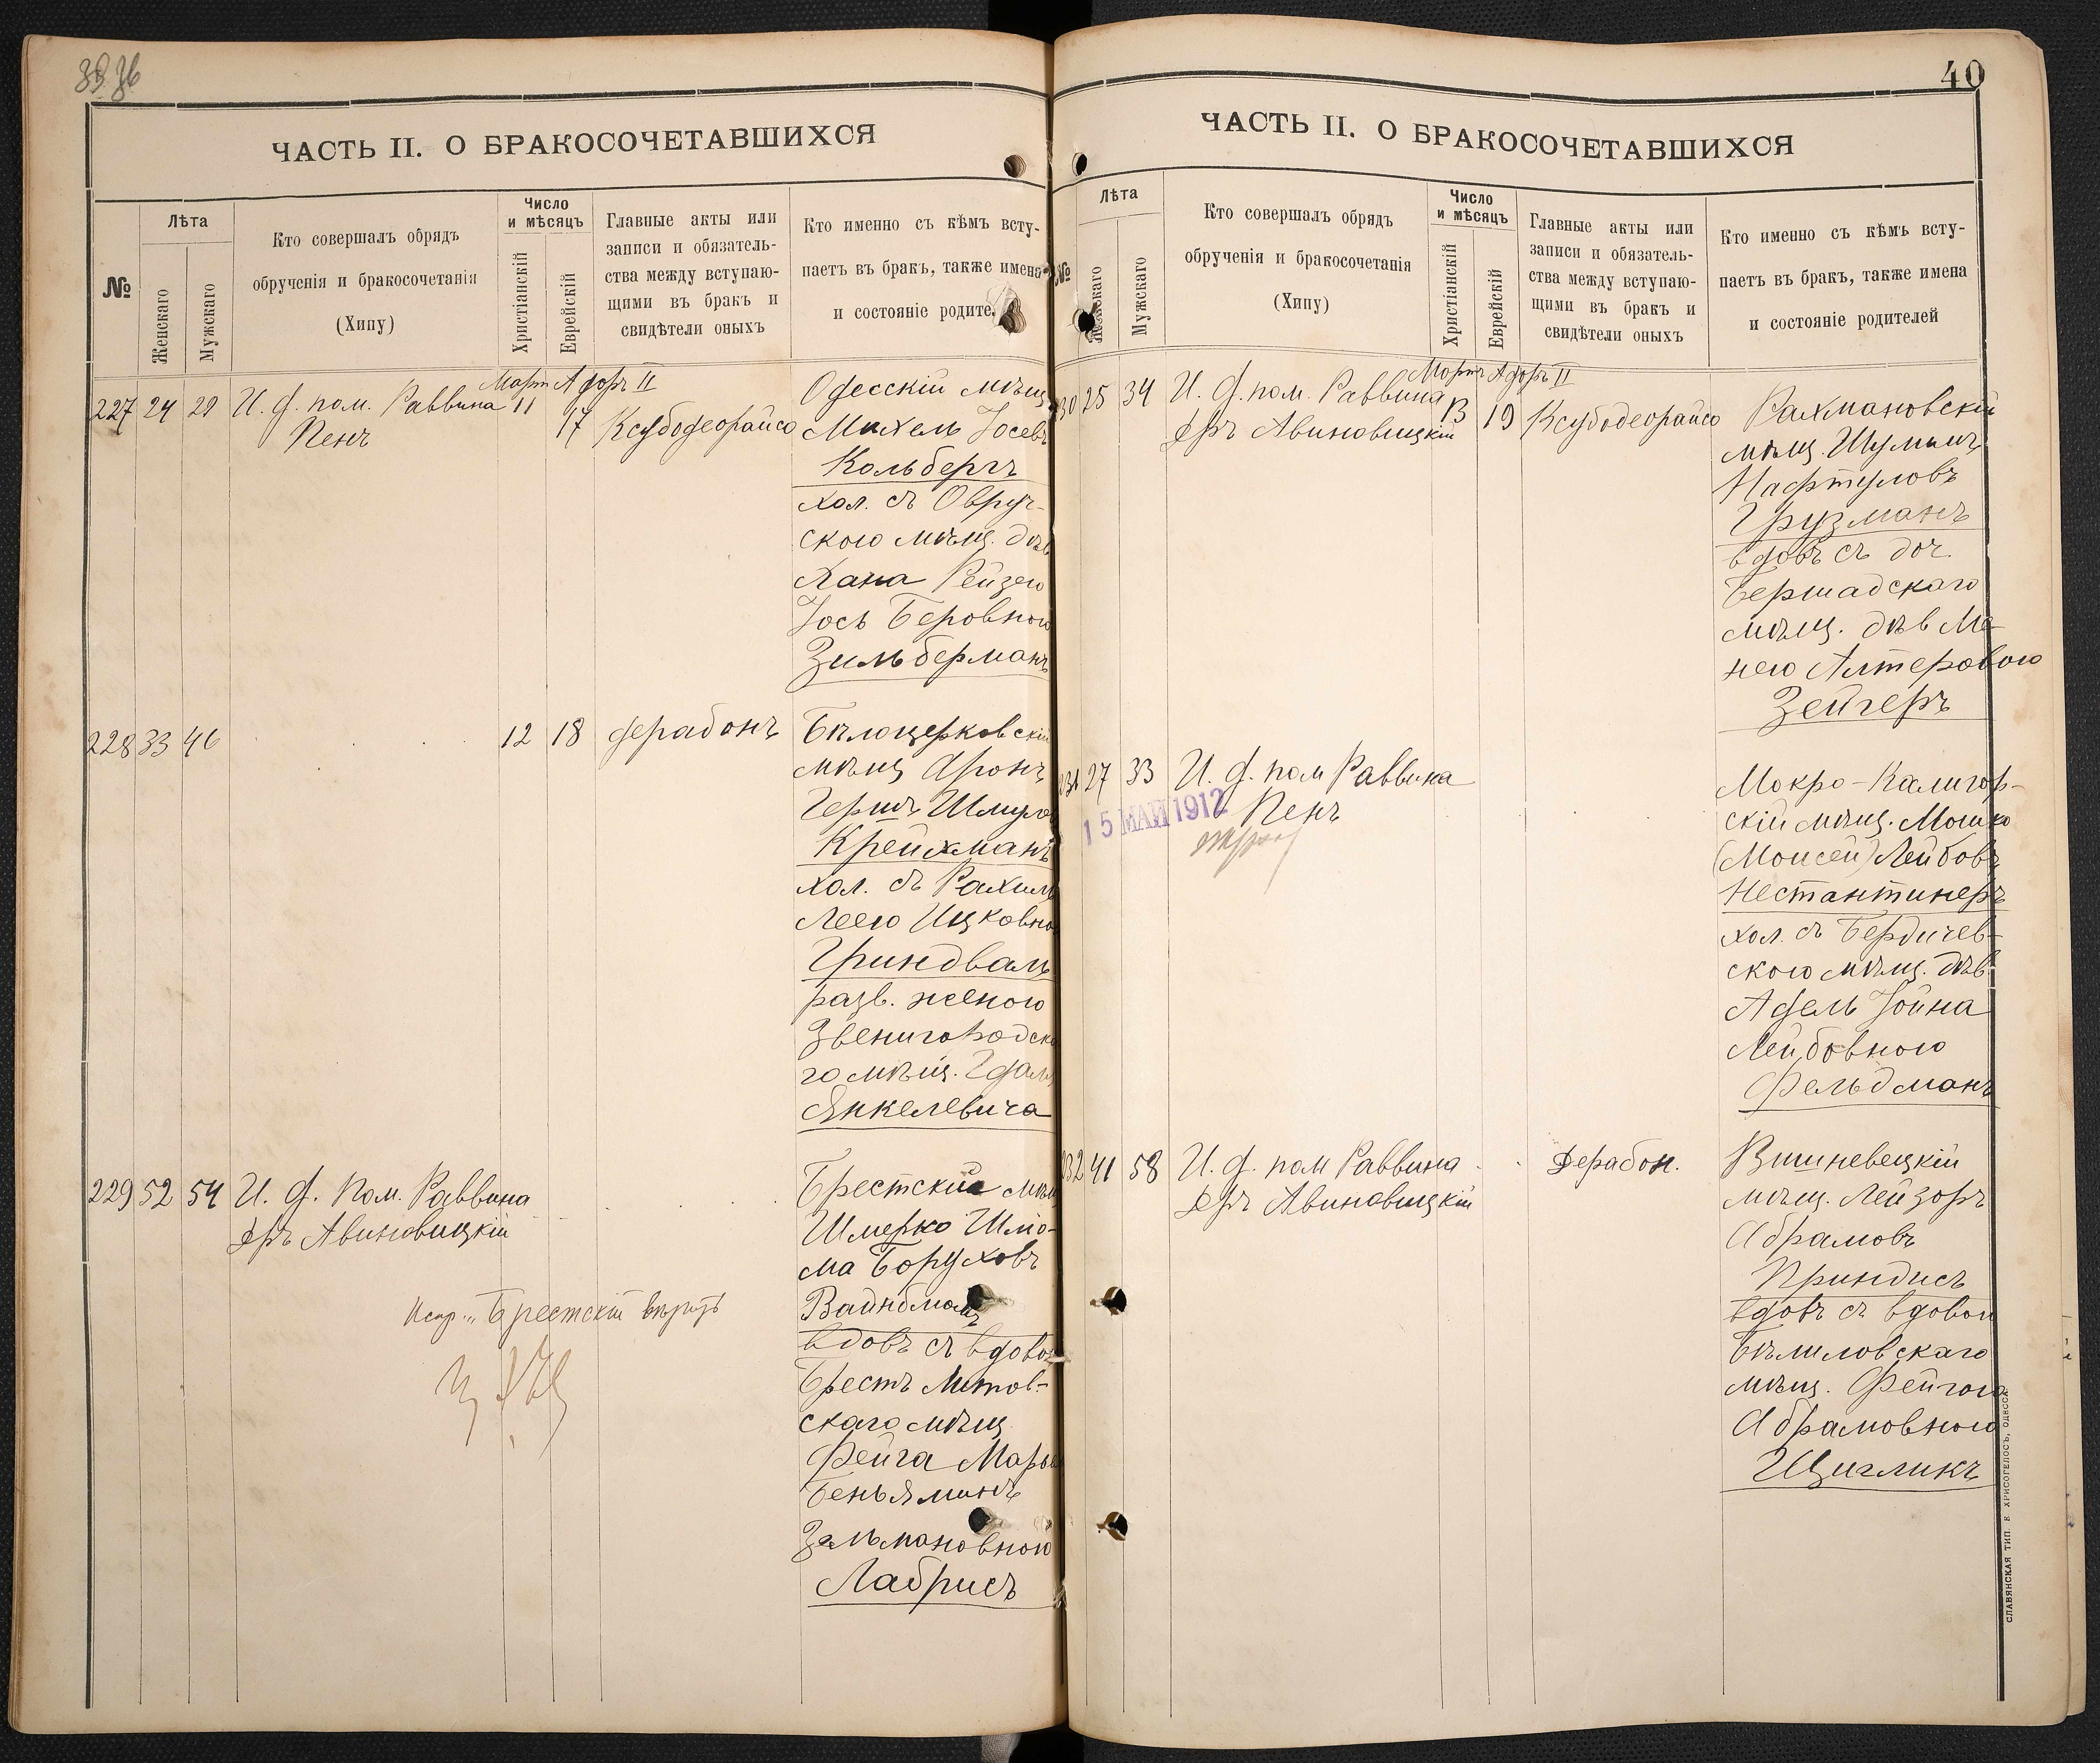 ЧАСТЬ II. О БРАКОСОЧЕТАВШИХСЯ
№
Лѣта
Женскаго
Мужскаго
Кто совершалъ обрядъ
обрученія и бракосочетанія
(Хипу)
Число
и мѣсяцъ
Христіанскій
Еврейскій
Главные акты или
записи и обязатель-
ства между вступаю-
щими въ бракъ и
свидѣтели оныхъ
Кто именно съ кѣмъ всту-
паетъ въ бракъ, также имена
и состояніе родите
Мартъ Адоръ II
227 24 29 И. ф. пом. Раввина 11 17 Ксубодеорайсо
Пенъ
Одесскій мѣщ
Михель Іосевъ
Кольбергъ
хол. съ Овруч-
скою мѣщ. дѣв
Хана Рейзею
Іось Беровною
Зильберманъ
228 33 46 12 18 дерабонъ
Бѣлоцерковскій
мѣщ Аронъ
Гершъ Шмулов
Крейхманъ
хол. съ Рахиль
Леею Ицковно
Гриндваль
разв. женою
Звенигородска
го мѣщ. Гдаль
Янкелевича
229 52 54 И. ф. пом. Раввина
дръ Авиновицкій
Брестскій мѣщ
Шмерко Шлio-
ма Боруховъ
Вайнбманъ
вдовъ съ вдовою
Брестъ Литов-
скаго мѣщ
Фейга Марья
Беньяминъ
Зальмановною
Лабрисъ
Испр. „Брестскій вѣрить
40
ЧАСТЬ II. О БРАКОСОЧЕТАВШИХСЯ
№
Лѣта
Женскаго
Мужскаго
Кто совершалъ обрядъ
обрученія и бракосочетанія
(Хипу)
Число
и мѣсяцъ
Христіанскій
Еврейскій
Главные акты или
записи и обязатель-
ства между вступаю-
щими въ бракъ и
свидѣтели оныхъ
Кто именно съ кѣмъ всту-
паетъ въ бракъ, также имена
и состояніе родителей
Мартъ Адоръ II
30 25 34 И. ф. пом. Раввина 13 19 Ксубодеорайсо
дръ Авиновицкій
Рахмановскій
мѣщ. Шулимъ
Нафтуловъ
Грузманъ
вдовъ съ доч.
Бершадскаго
мѣщ. дѣв Ме-
нею Алтеровою
Зейгеръ
231 27 33 И. ф. пом Раввина
Пенъ
15 МАЙ 1912
Мокро-Калигор-
скій мѣщ. Мошко
(Моисей) Лейбовъ
Нестантинеръ
хол. съ Бердичев-
скою мѣщ. дѣв.
Адель Іойна
Лейбовною
Фельдманъ
232 41 58 И. ф. пом Раввина
дръ Авиновицкій
Дерабон.
Вишневецкій
мѣщ. Лейзоръ
Абрамовъ
Приндисъ
вдовъ съ вдовой
Бѣлиловскаго
мѣщ. Фейгою
Абрамовною
Щигликъ
СЛАВЯНСКАЯ ТИП. Е ХРИСОГЕЛОСЪ, ОДЕССА